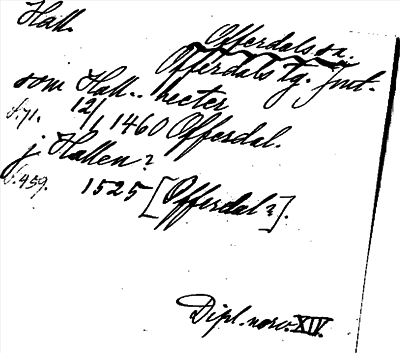 Hall.
Offerdals sn.
Offerdals tg. Jmt.
som Hall.. heeter
s.71. 12/1 1460 Offerdal.
j Hallen?
s.459. 1525 [Offerdal?].
Dipl. norv. XIV.